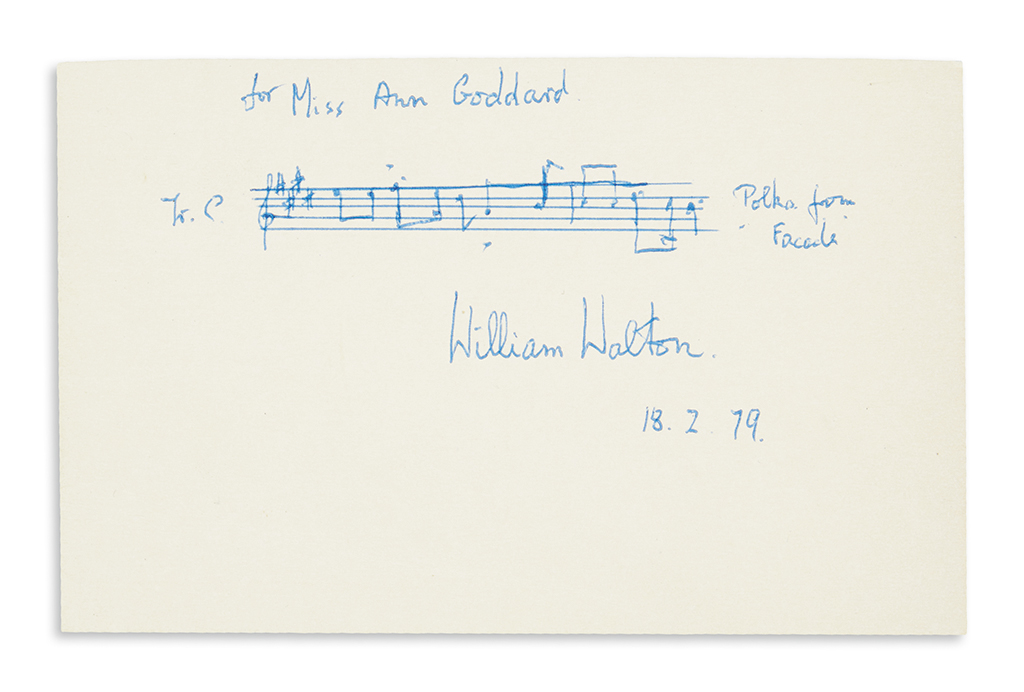 for Miss Ann Goddard
Tr. C
Polka from
Facade
William Walton.
18. 2. 79.